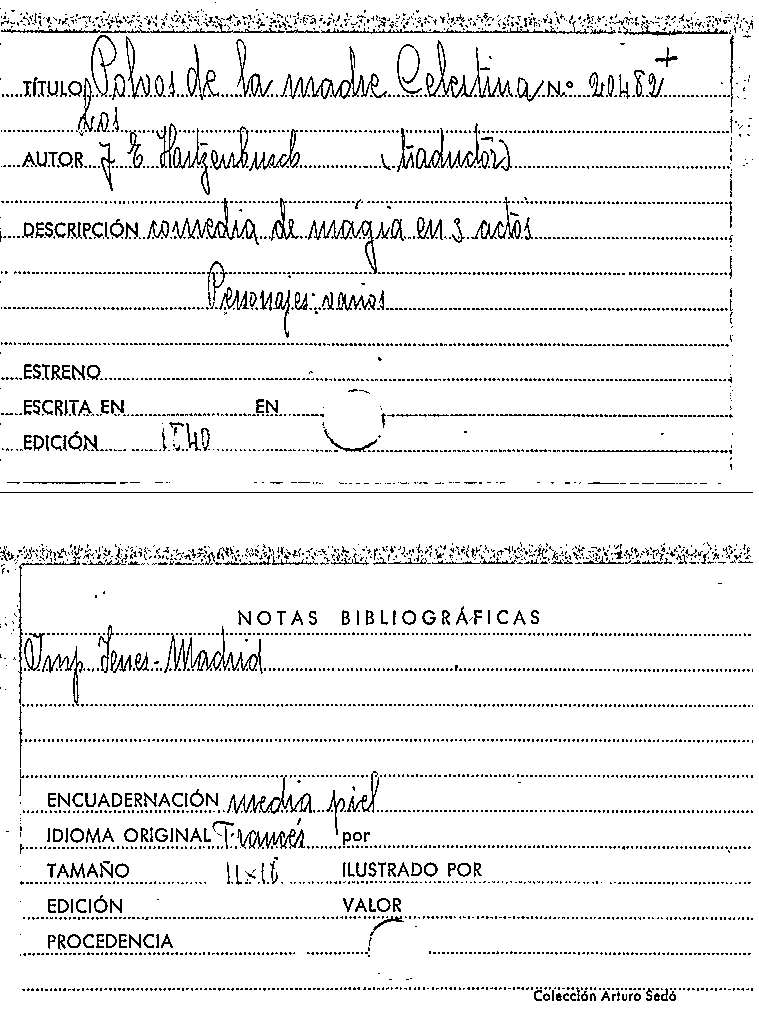 TÍTULO Polvos de la madre Celestina N.º 20482+
Los
AUTOR J E Hartzenbusch (traductor)
DESCRIPCIÓN comedia de mágia en 3 actos
Personajes: varios
ESTRENO
ESCRITA EN EN
EDICIÓN 1840
NOTAS BIBLIOGRÁFICAS
Imp Yenes - Madrid
ENCUADERNACIÓN media piel
IDIOMA ORIGINAL Francés por
TAMAÑO 11x18 ILUSTRADO POR
EDICIÓN VALOR
PROCEDENCIA
Colección Arturo Sedó